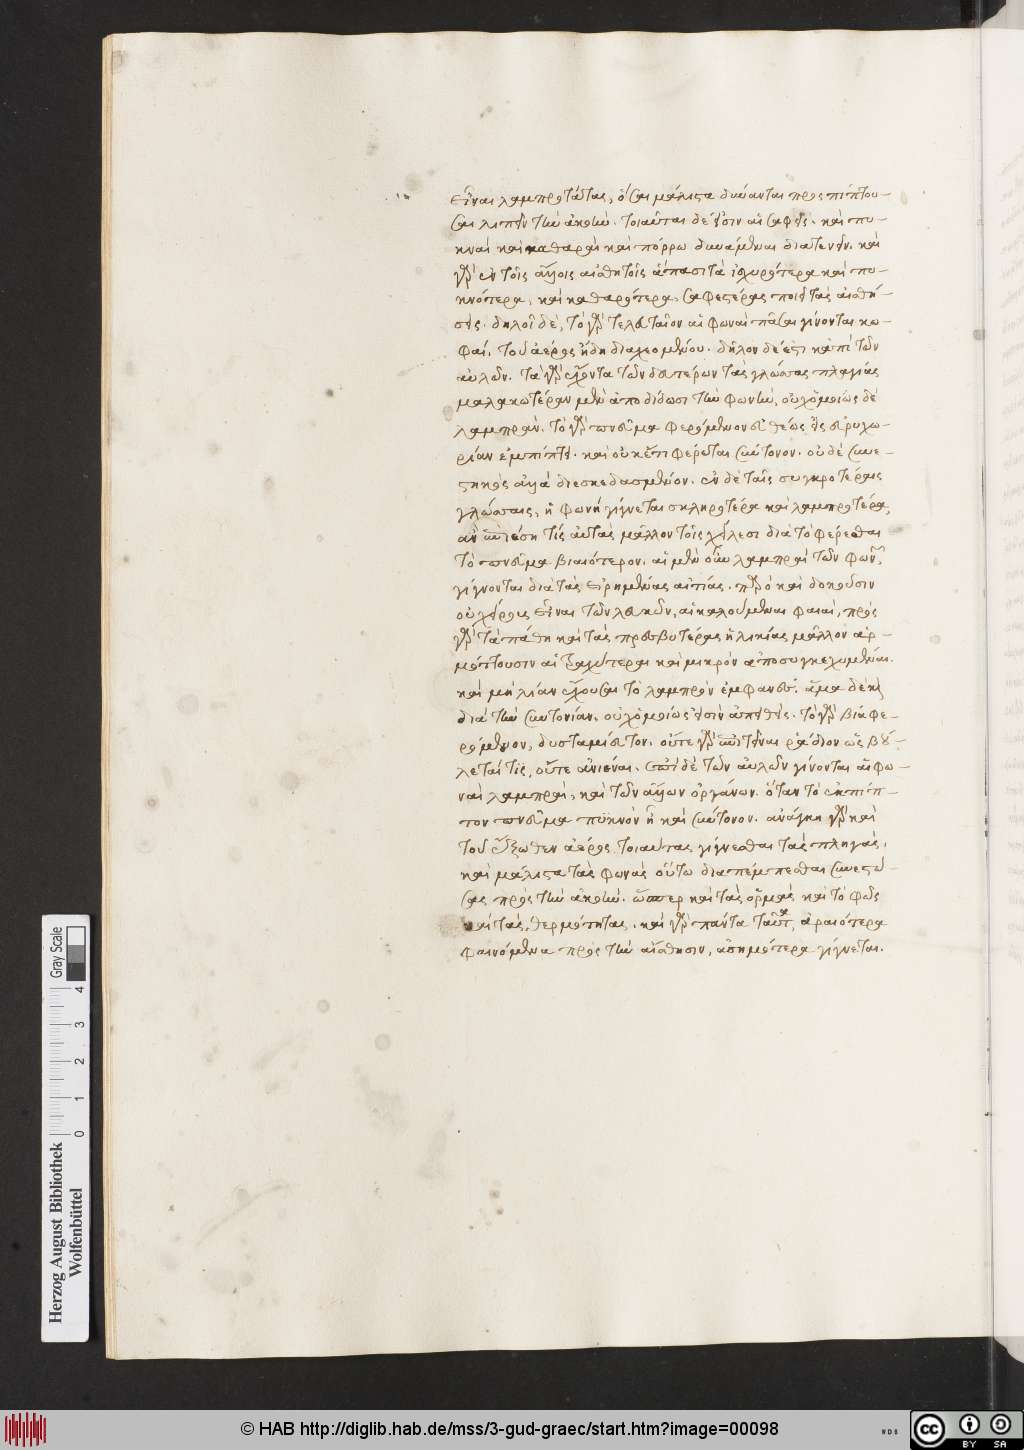 εἶναι λαμπροτάτας, ὅσαι μάλιστα δύνανται προσπίπτου-
σαι λιπεῖν τὴν ἀκοήν. τοιαῦται δέ εἰσιν αἱ σαφεῖς. καὶ πυ-
κναὶ καὶ καθαραὶ καὶ πόρρω δυνάμεναι διατείνειν. καὶ
γὰρ ἐν τοῖς ἄλλοις αἰσθητοῖς ἅπασι τὰ ἰσχυρότερα καὶ πυ-
κνότερα, καὶ καθαρότερα, σαφεστέρας ποιεῖ τὰς αἰσθή-
σεις. δηλοῖ δὲ, τὸ γὰρ τελευταῖον αἱ φωναὶ πᾶσαι γίνονται κω-
φαί, τοῦ ἀέρος ἤδη διαχεομένου. δῆλον δέ ἐστι κἀπὶ τῶν
αὐλῶν. τὰ γὰρ ἔχοντα τῶν δευτέρων τὰς γλώσσας πλαγίας
μαλακωτέραν μὲν ἀποδίδωσι τὴν φωνὴν, οὐχ ὁμοίως δὲ
λαμπράν. τὸ γὰρ πνεῦμα φερόμενον εὐθέως εἰς εὐρυχω-
ρίαν ἐμπίπτει. καὶ οὐκέτι φέρεται σύντονον. οὐδὲ συνε-
στηκὸς ἀλλὰ διεσκεδασμένον. ἐν δὲ ταῖς συγκροτέραις
γλώσσαις, ἡ φωνὴ γίγνεται σκληροτέρα καὶ λαμπροτέρα,
ἂν πιέσῃ τίς αὐτὰς μᾶλλον τοῖς χείλεσι διὰ τὸ φέρεσθαι
τὸ πνεῦμα βιαιότερον. αἱ μὲν οὖν λαμπραὶ τῶν φωνῶν
γίγνονται διὰ τὰς εἰρημένας αἰτίας. παρὸ καὶ δοκοῦσιν
οὐ χείρους εἶναι τῶν λευκῶν, αἱ καλούμεναι φαιαί, πρὸς
γὰρ τὰ πάθη καὶ τὰς πρεσβυτέρας ἡλικίας μᾶλλον ἁρ-
μόττουσιν αἱ τραχύτεραι καὶ μικρὸν ἀποσυγκεχυμέναι.
καὶ μὴ λίαν ἔχουσαι τὸ λαμπρὸν ἐμφανές. ἅμα δὲ καὶ
διὰ τὴν συντονίαν. οὐχ ὁμοίως εἰσὶν ἀπειθεῖς. τὸ γὰρ βίᾳ φε-
ρόμενον, δυσταμίευτον. οὔτε γὰρ ἐπιτεῖναι ῥᾴδιον ὡς βού-
λεταί τις, οὔτε ἀνιέναι. ἐπὶ δὲ τῶν αὐλῶν γίνονται αἱ φω-
ναὶ λαμπραί, καὶ τῶν ἄλλων ὀργάνων. ὅταν τὸ ἐκπίπ-
τον πνεῦμα πυκνὸν ᾖ καὶ σύντονον. ἀνάγκη γὰρ καὶ
τοῦ ἔξωθεν ἀέρος τοιαύτας γίγνεσθαι τὰς πληγάς.
καὶ μάλιστα τὰς φωνὰς οὕτω διαπέμπεσθαι συνεστώ-
σας πρὸς τὴν ἀκοήν. ὥσπερ καὶ τὰς ὀσμὰς καὶ τὸ φῶς
καὶ τὰς θερμότητας. καὶ γὰρ πάντα ταῦτα, ἀραιότερα
φαινόμενα πρὸς τὴν αἴσθησιν, ἀσημότερα γίγνεται.
Herzog August Bibliothek
Wolfenbüttel
0 1 2 3 4
Gray Scale
© HAB http://diglib.hab.de/mss/3-gud-graec/start.htm?image=00098
WDB
cc BY SA